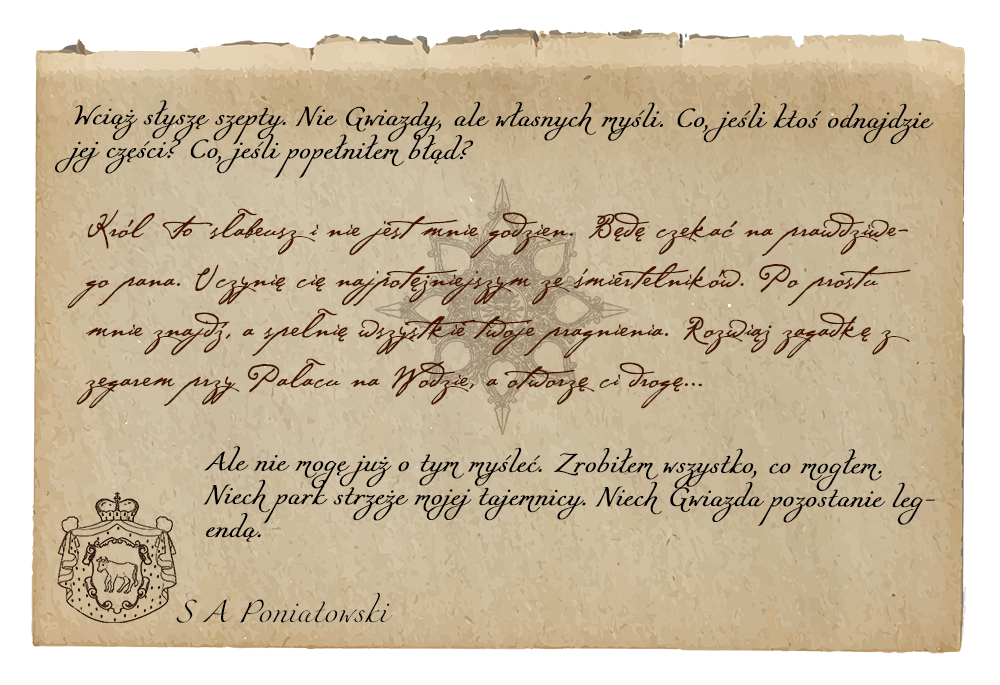 Wciąż słyszę szepty. Nie Gwiazdy, ale własnych myśli. Co, jeśli ktoś odnajdzie
jej części? Co, jeśli popełniłem błąd?
Król to słabeusz i nie jest mnie godzien. Będę czekać na prawdziwe-
go pana. Uczynię cię najpotężniejszym ze śmiertelników. Po prostu
mnie znajdź, a spełnię wszystkie twoje pragnienia. Rozwiąż zagadkę z
zegarem przy Pałacu na Wodzie, a otworzę ci drogę...
Ale nie mogę już o tym myśleć. Zrobiłem wszystko, co mogłem.
Niech park strzeże mojej tajemnicy. Niech Gwiazda pozostanie leg-
endą.
S A Poniatowski